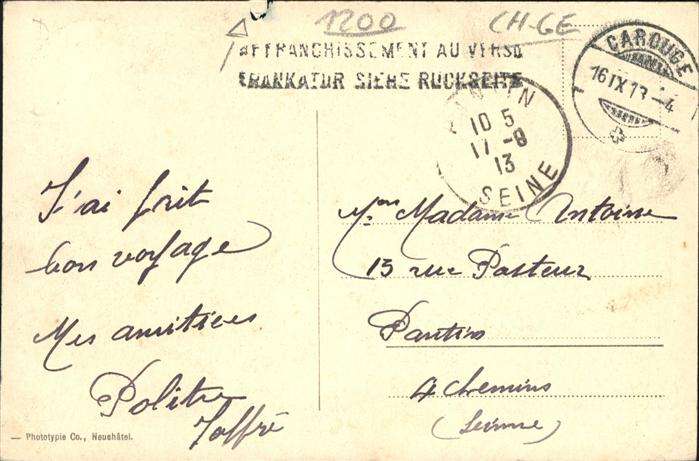 1200 CH-GE
AFFRANCHISSEMENT AU VERSO
FRANKATUR SIEHE RÜCKSEITE
CAROUGE
16 IX 13 - 4
PANTIN
10 5
17 - 9
13
SEINE
J'ai fait
bon voyage
Mes amitiées
Joffré
Madame Antoine
13 rue Pasteur
Pantin
4 chemins
(Seinne)
— Phototypie Co., Neuchâtel.